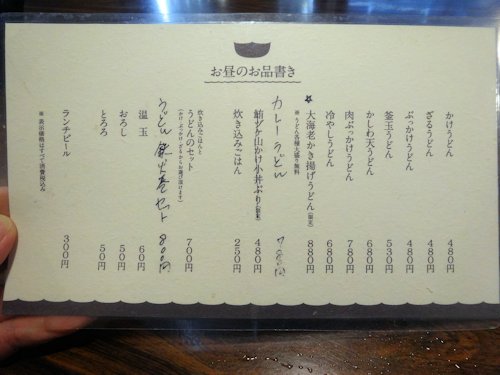 お昼のお品書き
かけうどん 480円
ざるうどん 480円
ぶっかけうどん 480円
釜玉うどん 530円
かしわ天うどん 680円
肉ぶっかけうどん 780円
冷やしうどん 680円
大海老かき揚げうどん(限定) 880円
※うどん各種大盛り無料
カレーうどん
鮪ヅケ山かけ小丼ぶり(限定) 480円
炊き込みごはん 250円
炊き込みごはんと
うどんのセット 700円
うどん鉄火巻セット 800円
温玉 60円
おろし 50円
とろろ 50円
ランチビール 300円
※表示価格はすべて消費税込み